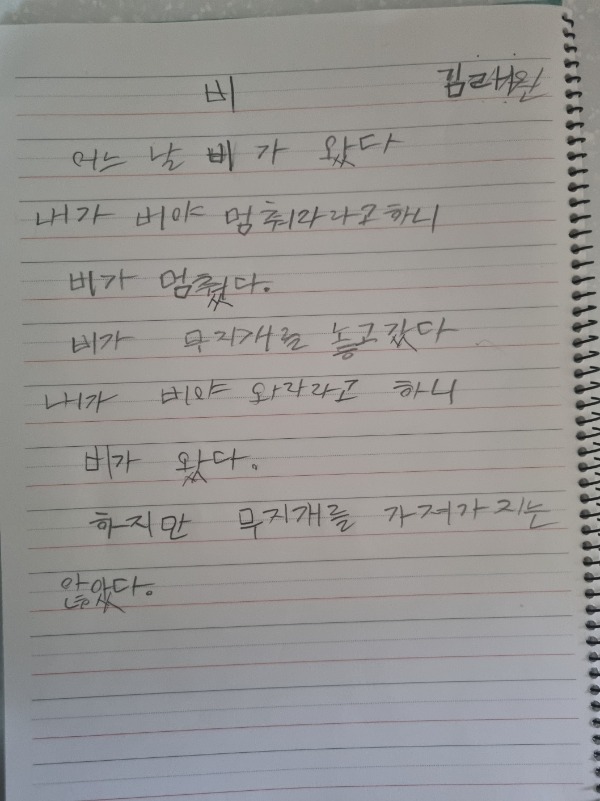 비
어느 날 비가 왔다
내가 비야 멈춰라라고하니
비가 멈췄다.
비가 무지개를 놓고갔다
내가 비야 와라라고 하니
비가 왔다.
하지만 무지개를 가져가지는
않았다.